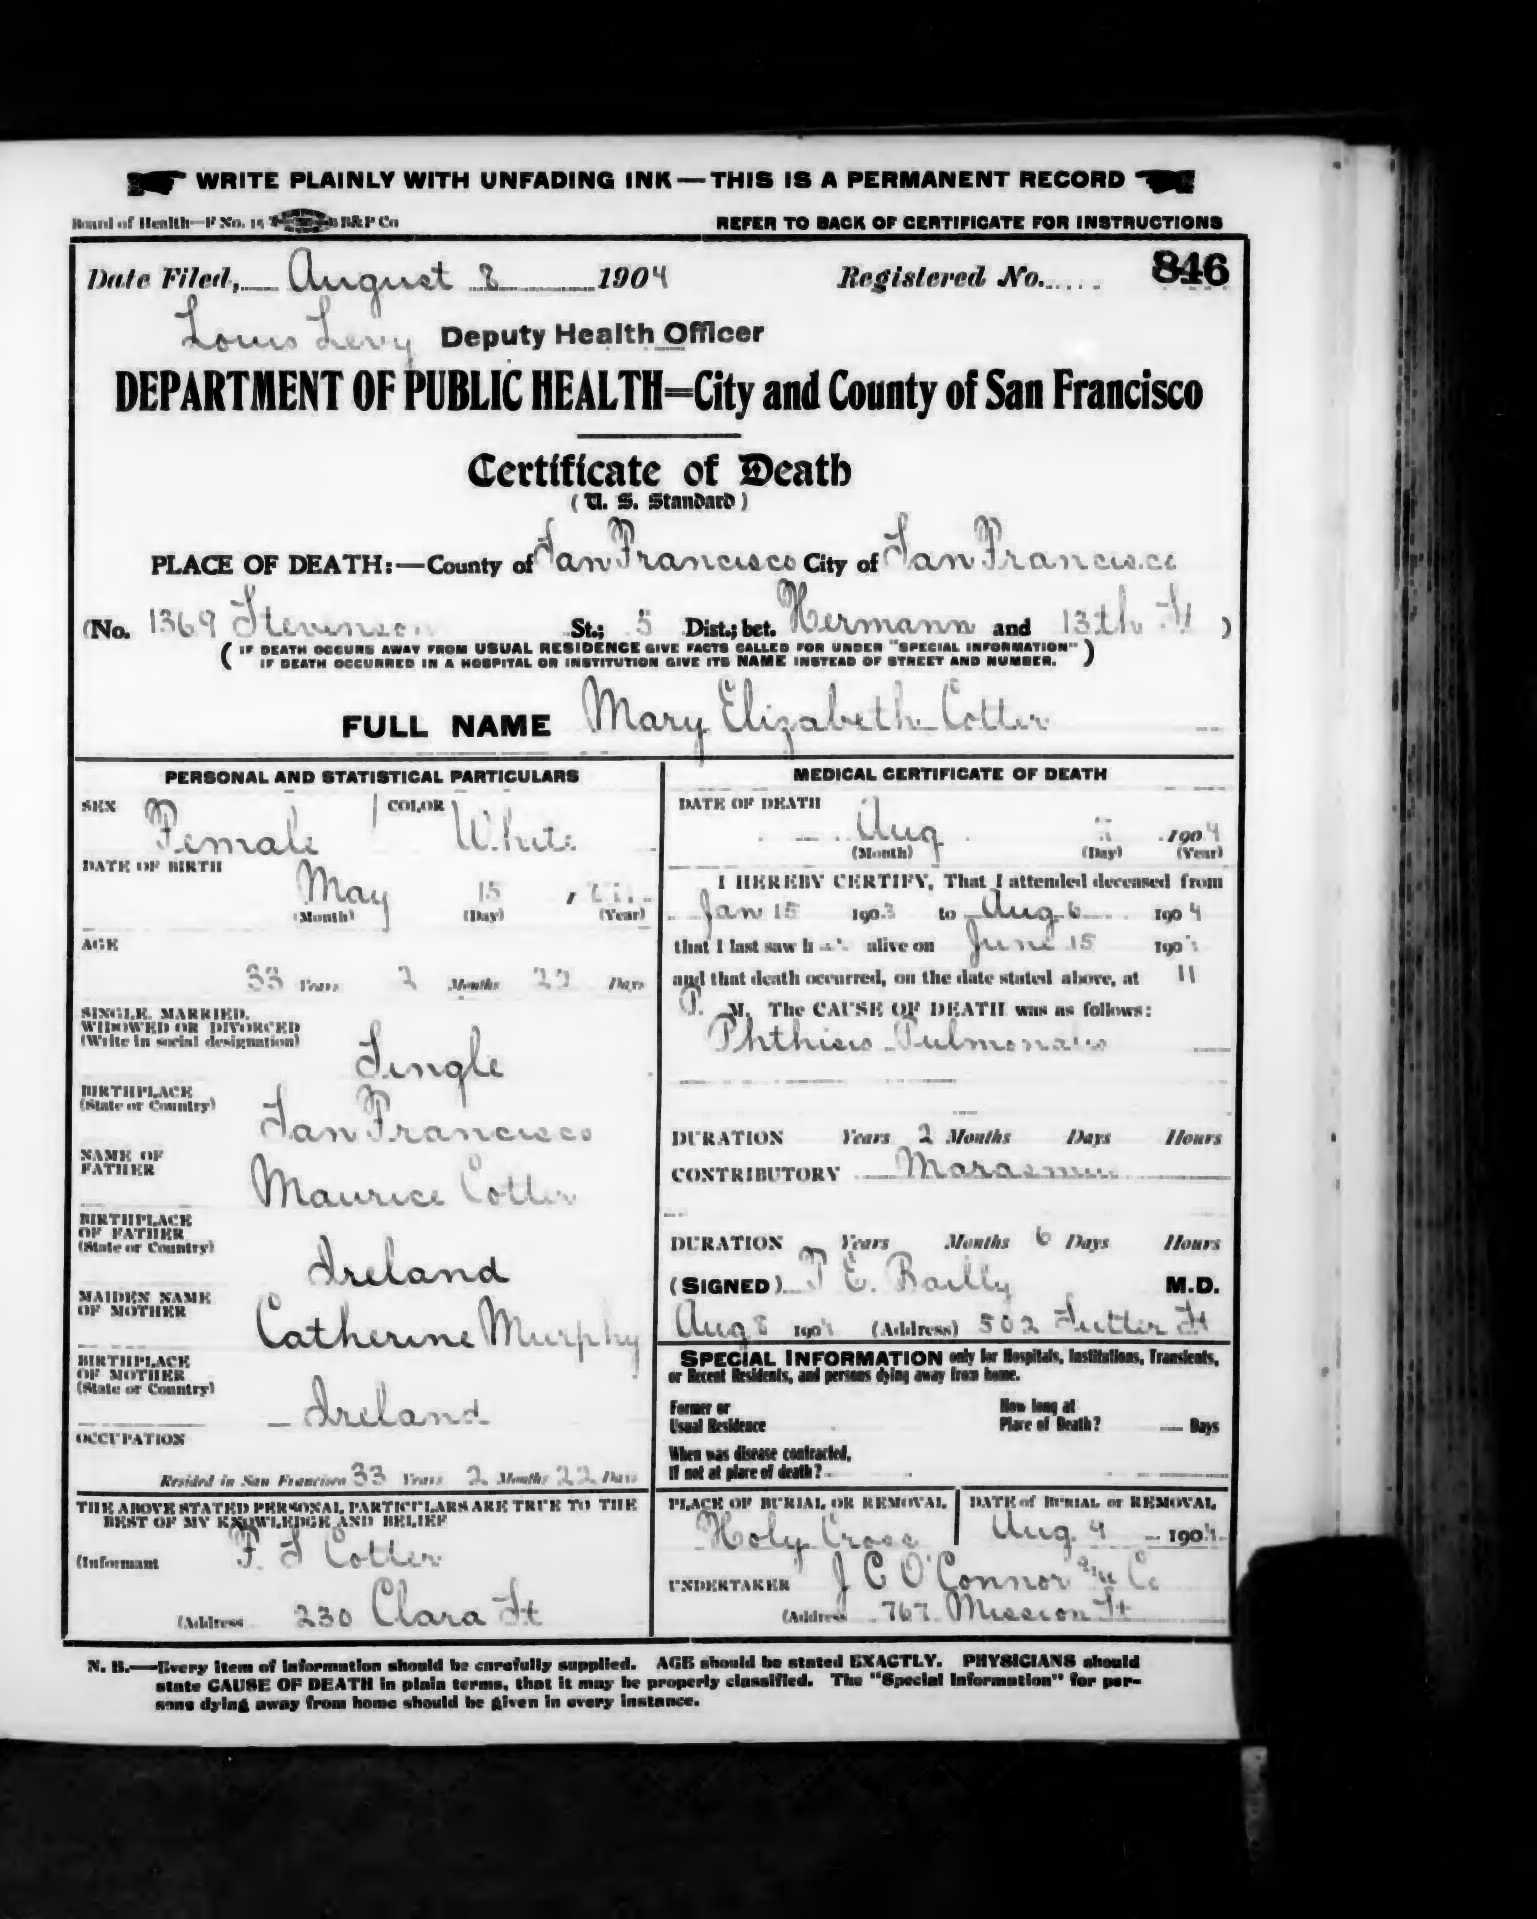 WRITE PLAINLY WITH UNFADING INK — THIS IS A PERMANENT RECORD
Board of Health—F No. 15 B&P Co REFER TO BACK OF CERTIFICATE FOR INSTRUCTIONS
Date Filed, August 8 1904 Registered No. 846
Louis Levy Deputy Health Officer
DEPARTMENT OF PUBLIC HEALTH=City and County of San Francisco
Certificate of Death
(U. S. Standard)
PLACE OF DEATH:—County of San Francisco City of San Francisco
(No. 1369 Stevenson St.; 5 Dist.; bet. Hermann and 13th St )
( IF DEATH OCCURS AWAY FROM USUAL RESIDENCE GIVE FACTS CALLED FOR UNDER "SPECIAL INFORMATION" )
IF DEATH OCCURRED IN A HOSPITAL OR INSTITUTION GIVE ITS NAME INSTEAD OF STREET AND NUMBER.
FULL NAME Mary Elizabeth Cotter
PERSONAL AND STATISTICAL PARTICULARS
SEX Female COLOR White
DATE OF BIRTH
May 15
(Month) (Day) (Year)
AGE
33 Years 2 Months 22 Days
SINGLE, MARRIED,
WIDOWED OR DIVORCED
(Write in social designation)
Single
BIRTHPLACE
(State or Country)
San Francisco
NAME OF
FATHER
Maurice Cotter
BIRTHPLACE
OF FATHER
(State or Country)
Ireland
MAIDEN NAME
OF MOTHER
Catherine Murphy
BIRTHPLACE
OF MOTHER
(State or Country)
Ireland
OCCUPATION
Resided in San Francisco 33 Years 2 Months 22 Days
THE ABOVE STATED PERSONAL PARTICULARS ARE TRUE TO THE
BEST OF MY KNOWLEDGE AND BELIEF
(Informant F. S Cotter
(Address 230 Clara St
MEDICAL CERTIFICATE OF DEATH
DATE OF DEATH
Aug 1904
(Month) (Day) (Year)
I HEREBY CERTIFY, That I attended deceased from
Jan 15 1903 to Aug 6 1904
that I last saw h alive on June 15 190
and that death occurred, on the date stated above, at 11
P. M. The CAUSE OF DEATH was as follows:
Phthisis Pulmonalis
DURATION Years 2 Months Days Hours
CONTRIBUTORY Marasmus
DURATION Years Months 6 Days Hours
(SIGNED) P E. Bailly M.D.
Aug 8 1904 (Address) 502 Sutter St
SPECIAL INFORMATION only for Hospitals, Institutions, Transients,
or Recent Residents, and persons dying away from home.
Former or
Usual Residence
How long at
Place of Death? Days
When was disease contracted,
If not at place of death?
PLACE OF BURIAL OR REMOVAL
Holy Cross
DATE of BURIAL or REMOVAL
Aug. 9 1904
UNDERTAKER J C O'Connor and Co
(Address 767 Mission St
N. B.—Every item of information should be carefully supplied. AGE should be stated EXACTLY. PHYSICIANS should
state CAUSE OF DEATH in plain terms, that it may be properly classified. The "Special Information" for per-
sons dying away from home should be given in every instance.